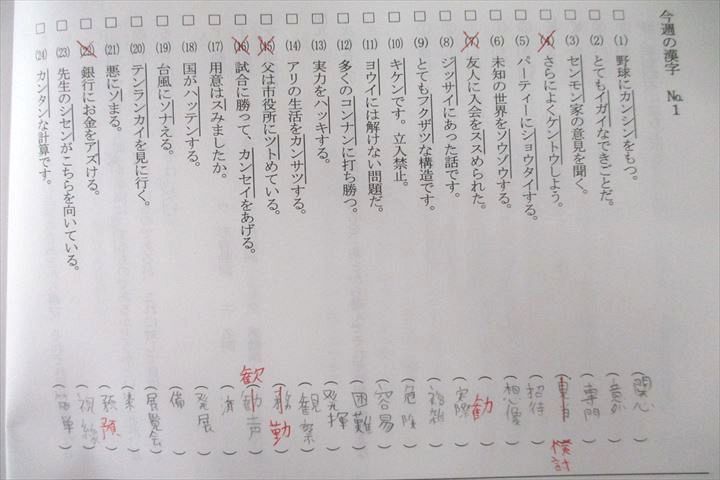 今週の漢字 No.1
□ (1) 野球にカンシンをもつ。 (関心)
□ (2) とてもイガイなできごとだ。 (意外)
□ (3) センモン家の意見を聞く。 (専門)
□ (4) さらによくケントウしよう。 検討
□ (5) パーティーにショウタイする。 (招待)
□ (6) 未知の世界をソウゾウする。 (想像)
□ (7) 友人に入会をススめられた。 (勧)
□ (8) ジッサイにあった話です。 (実際)
□ (9) とてもフクザツな構造です。 (複雑)
□ (10) キケンです。立入禁止。 (危険)
□ (11) ヨウイには解けない問題だ。 (容易)
□ (12) 多くのコンナンに打ち勝つ。 (困難)
□ (13) 実力をハッキする。 (発揮)
□ (14) アリの生活をカンサツする。 (観察)
□ (15) 父は市役所にツトめている。 (務) 勤
□ (16) 試合に勝って、カンセイをあげる。 (勧声) 歓
□ (17) 用意はスみましたか。 (済)
□ (18) 国がハッテンする。 (発展)
□ (19) 台風にソナえる。 (備)
□ (20) テンランカイを見に行く。 (展覧会)
□ (21) 悪にソまる。 (染)
□ (22) 銀行にお金をアズける。 預
□ (23) 先生のシセンがこちらを向いている。 (視線)
□ (24) カンタンな計算です。 (簡単)